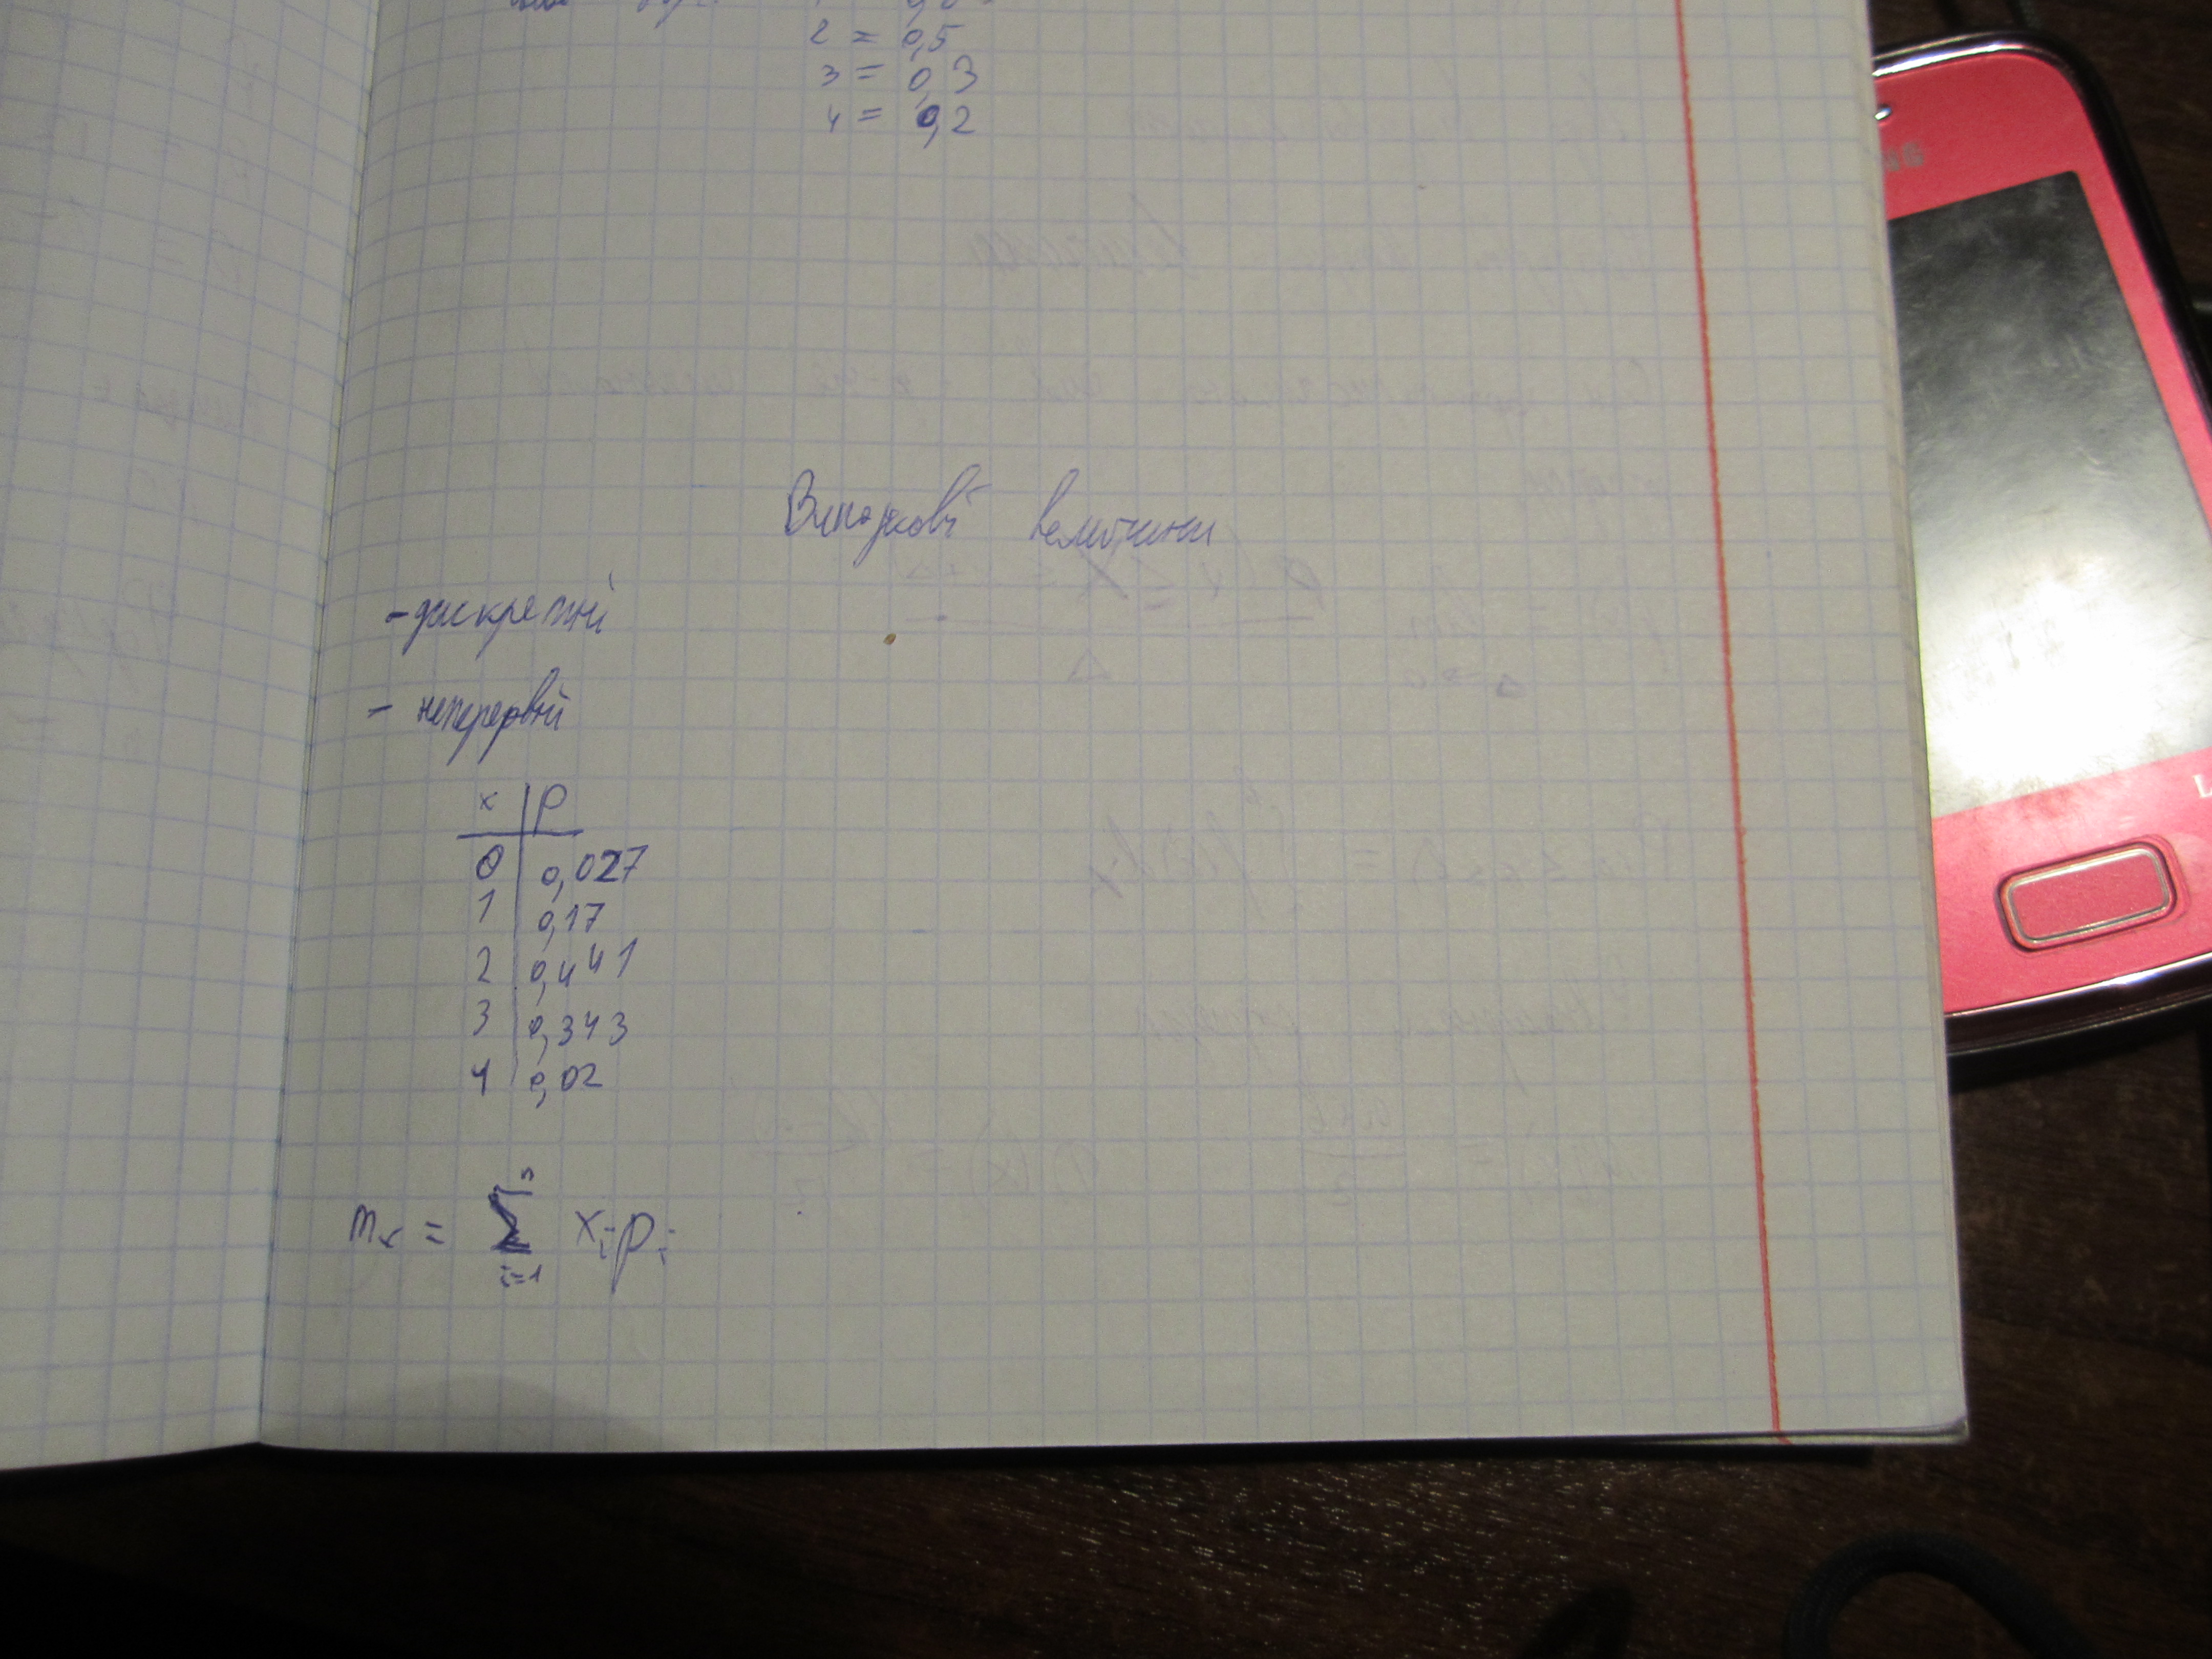 2 = 0,5
3 = 0,3
4 = 0,2
Випадкові величини
- дискретні
- неперервні
x | p
0 | 0,027
1 | 0,17
2 | 0,441
3 | 0,343
4 | 0,02
mₓ = ∑ⁿᵢ₌₁ xᵢpᵢ